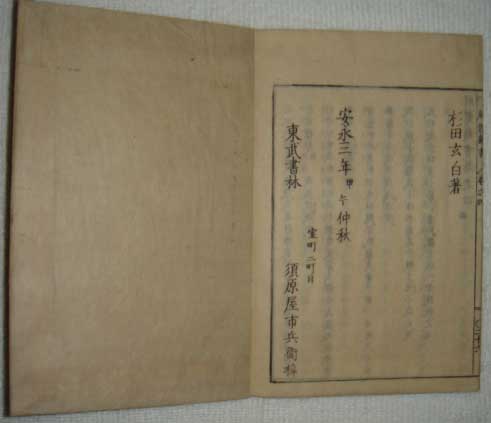 杉田玄白著
安永三年甲午仲秋
東武書林
室町二町目
須原屋市兵衛梓